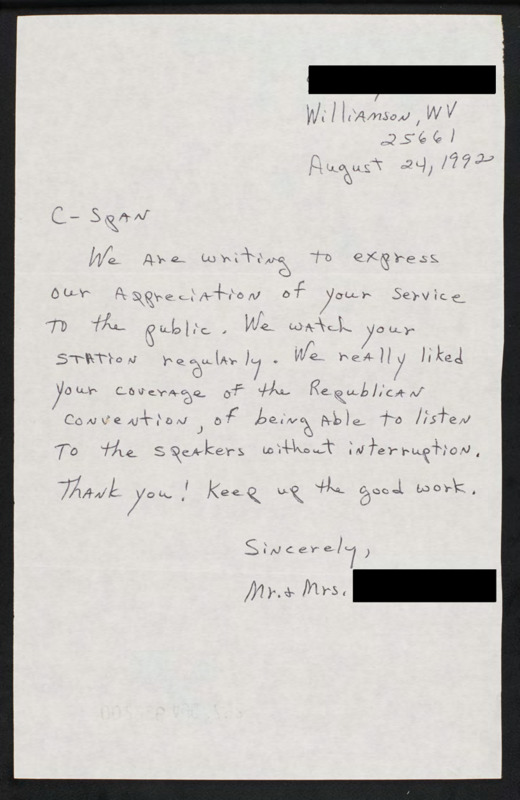 Williamson, WV
25661
August 24, 1992
C-Span
We are writing to express
our appreciation of your service
to the public. We watch your
station regularly. We really liked
your coverage of the Republican
convention, of being able to listen
to the speakers without interruption.
Thank you! Keep up the good work.
Sincerely,
Mr. & Mrs.